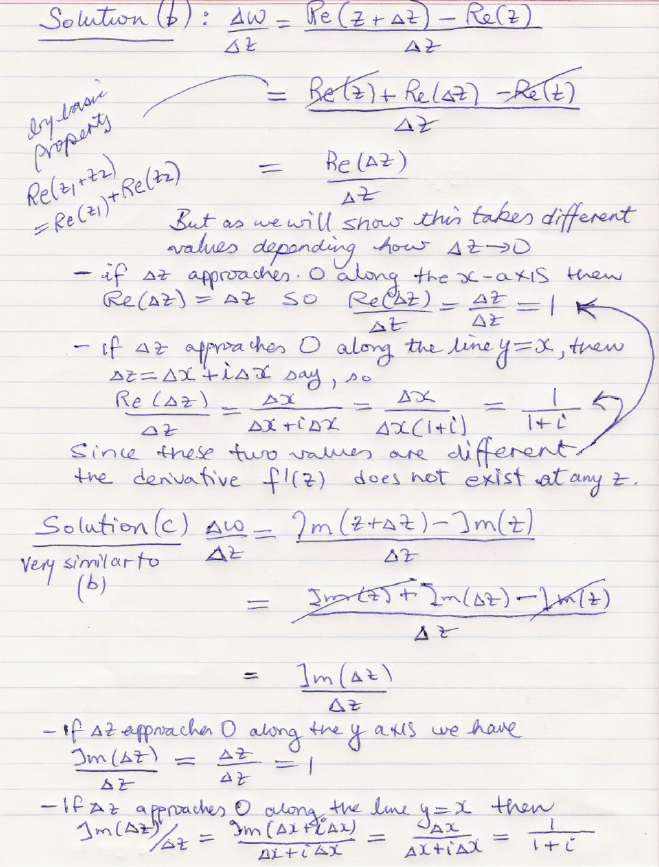 Solution (b) : Δw/Δz = Re(z + Δz) − Re(z) / Δz
= Re(z) + Re(Δz) − Re(z) / Δz
by basic
property
Re(z1+z2)
= Re(z1) + Re(z2)
= Re(Δz) / Δz
But as we will show this takes different
values depending how Δz→0
- if Δz approaches 0 along the x-axis then
Re(Δz) = Δz so Re(Δz)/Δz = Δz/Δz = 1
- if Δz approaches 0 along the line y=x, then
Δz = Δx + iΔx say, so
Re(Δz)/Δz = Δx/Δx+iΔx = Δx/Δx(1+i) = 1/1+i
Since these two values are different
the derivative f'(z) does not exist at any z.
Solution (c) Δw/Δz = Im(z+Δz) − Im(z) / Δz
very similar to
(b)
= Im(z) + Im(Δz) − Im(z) / Δz
= Im(Δz) / Δz
- if Δz approaches 0 along the y axis we have
Im(Δz)/Δz = Δz/Δz = 1
- If Δz approaches 0 along the line y=x then
Im(Δz)/Δz = Im(Δx+iΔx)/Δx+iΔx = Δx/Δx+iΔx = 1/1+i